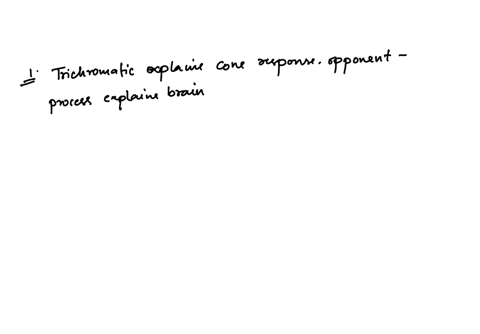 1. Trichromatic explains cone response. opponent -
process explains brain